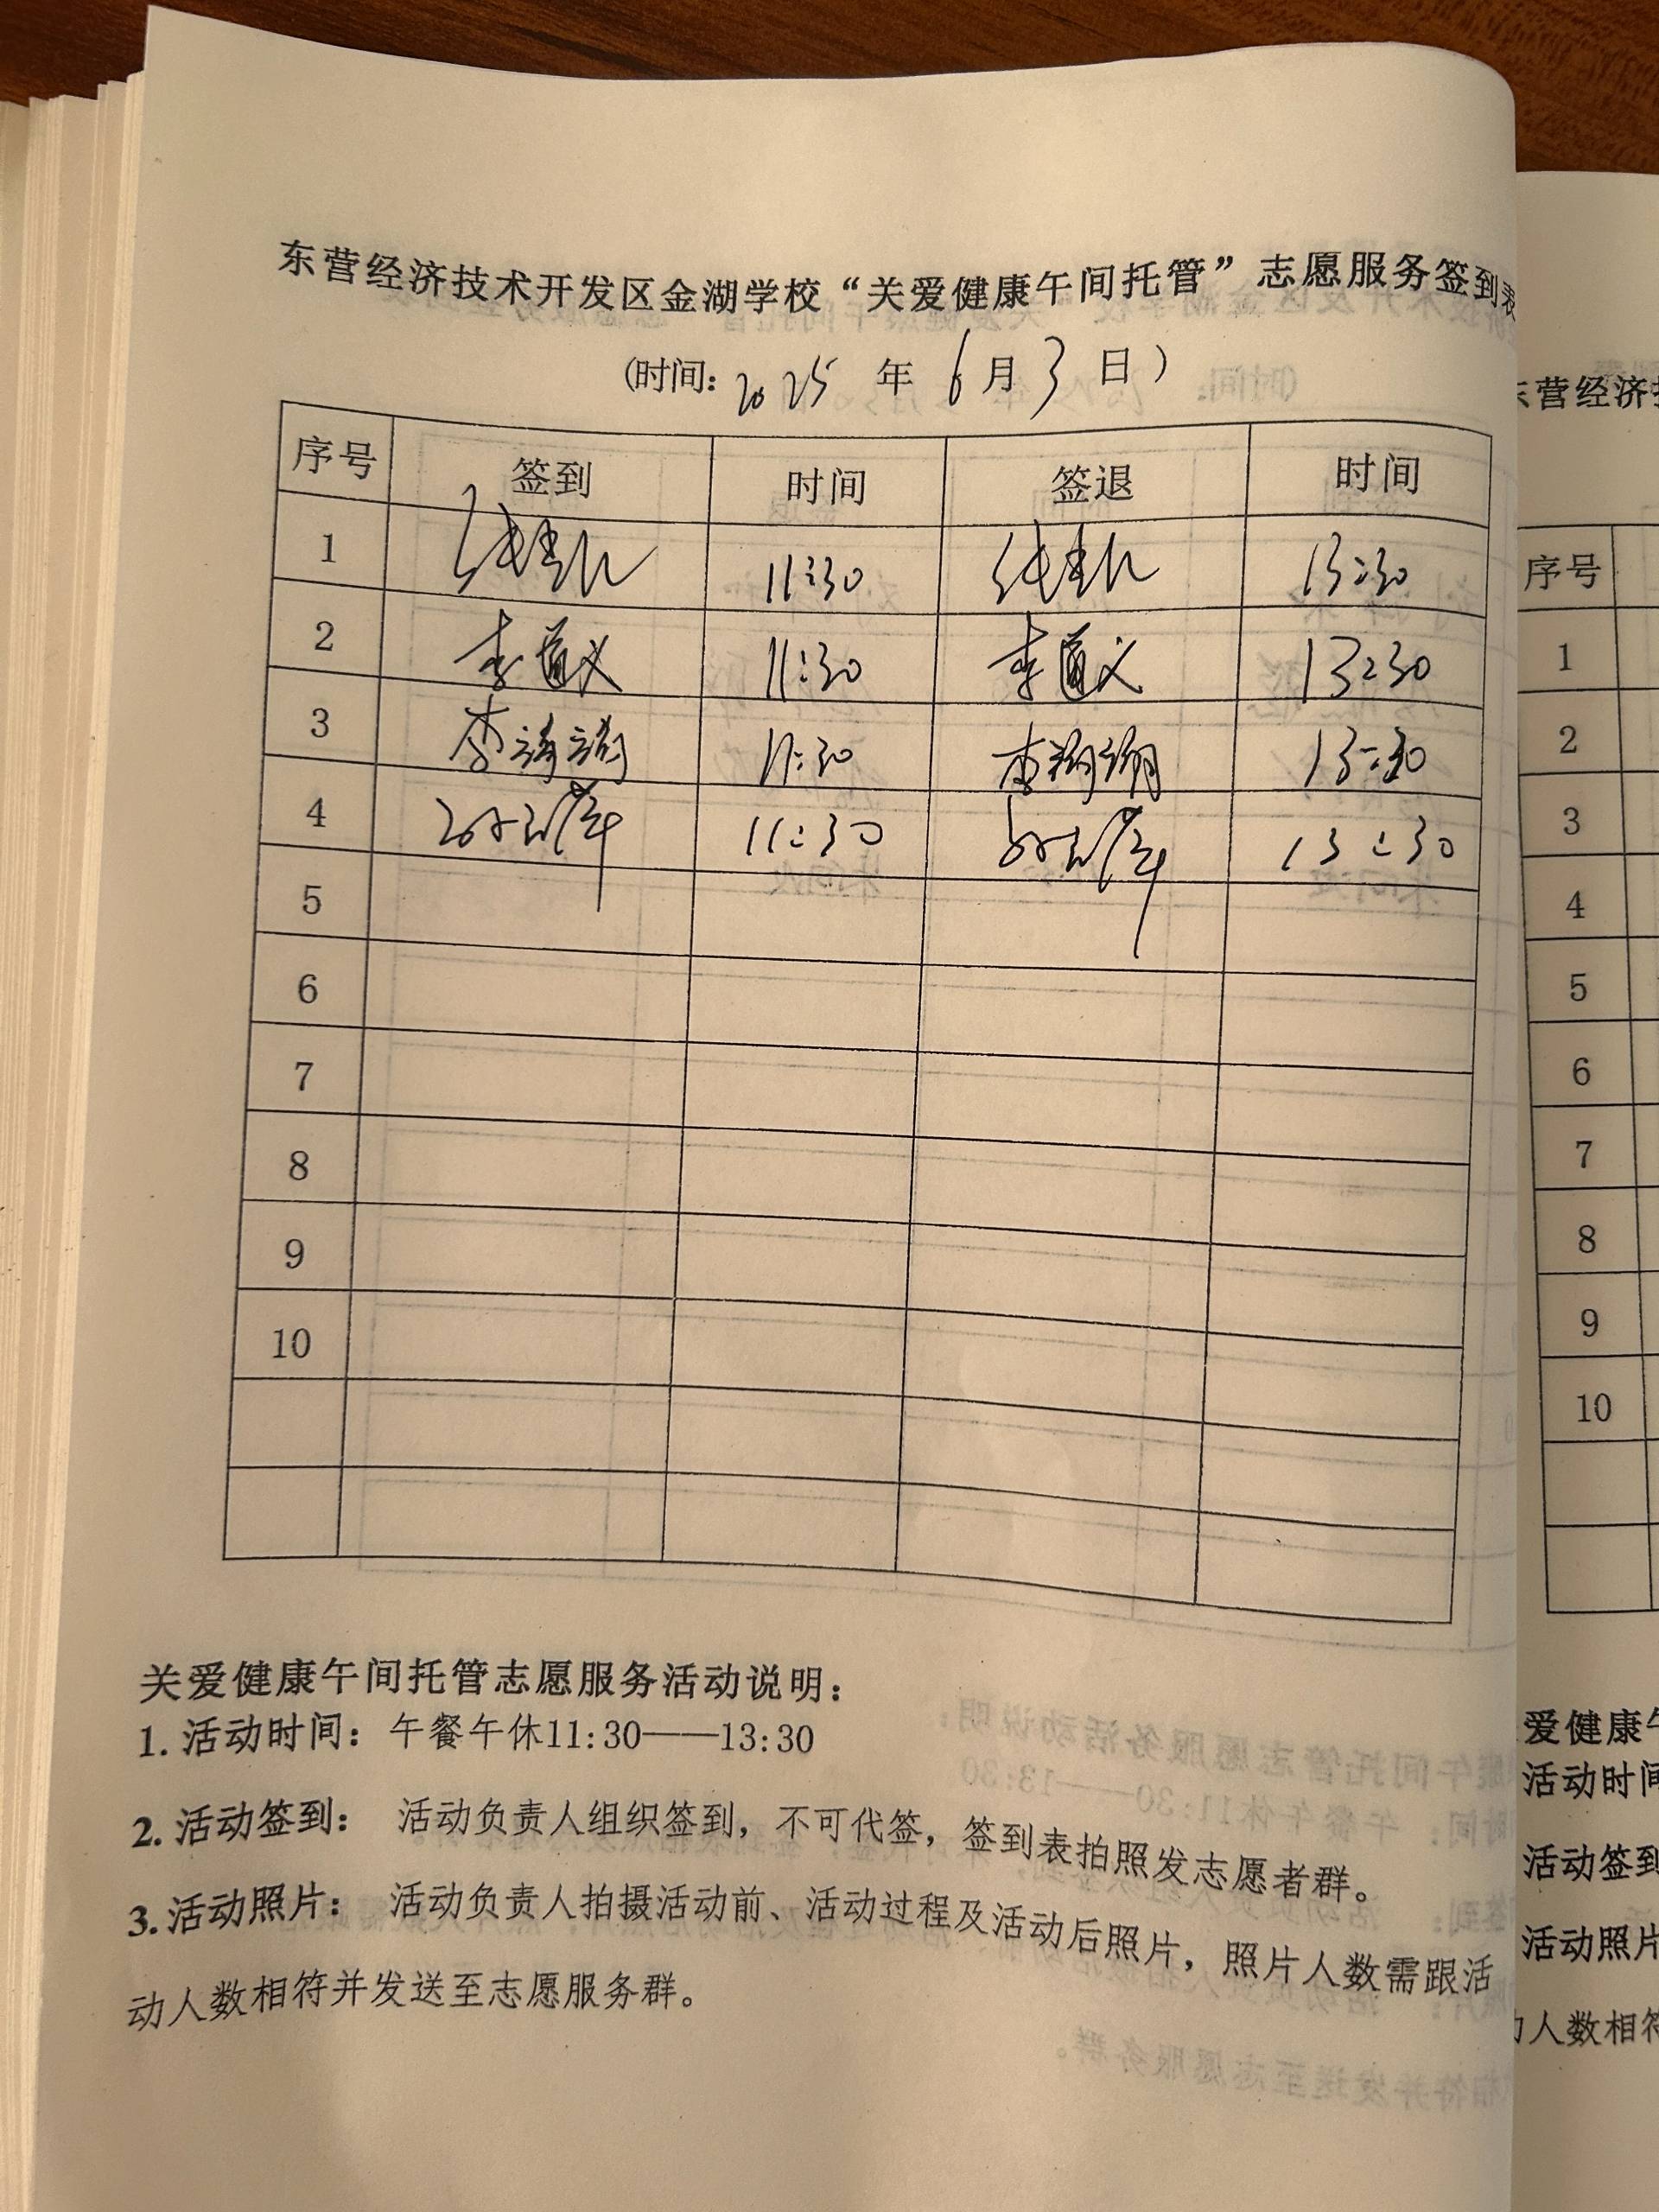 东营经济技术开发区金湖学校“关爱健康午间托管”志愿服务签到表
(时间: 2025 年 6 月 3 日)
序号 签到 时间 签退 时间
1 11:30 13:30
2 李道义 11:30 李道义 13:30
3 李 11:30 李 13:30
4 11:30 13:30
5
6
7
8
9
10
关爱健康午间托管志愿服务活动说明:
1. 活动时间: 午餐午休11:30——13:30
2. 活动签到: 活动负责人组织签到,不可代签,签到表拍照发志愿者群。
3. 活动照片: 活动负责人拍摄活动前、活动过程及活动后照片,照片人数需跟活
动人数相符并发送至志愿服务群。
东营经济技
序号
1
2
3
4
5
6
7
8
9
10
爱健康午
活动时间
活动签到
活动照片
人数相符